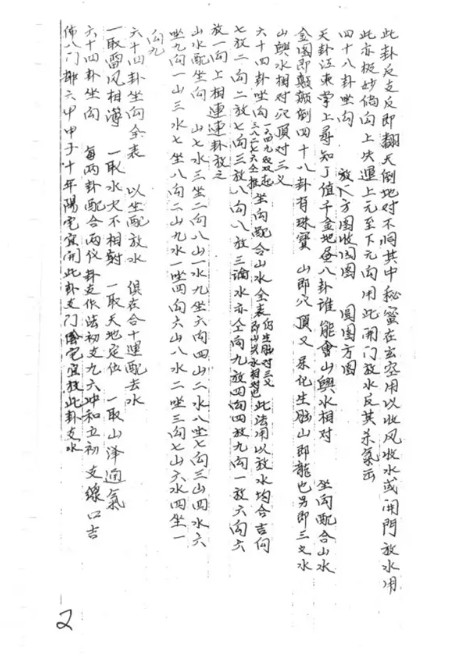 此卦反支反即翻天倒地对不同其中秘蜜在玄空用以收风收水或開門放水用
此亦挨妙倘向上失運上元至下元向用此開门放水反其杀氣云
四十八卦坐向 放人方圖收因圖 圓圖方圖
天卦江東掌上尋知了值千金地昼八卦谁能會山與水相对 坐向配合山水
金圖即颠颠倒四十八卦有珠寶 山即穴頂又 化生脑山即龍也另即三义水
山與水相对穴頂对三义
六十四卦坐向 坐向配合山水全表 此法用以放水均合吉向
七放二向二放七向三放八向八放三 水亦 向九放四向四放九向一放六向六
放一向上相連連卦放之
山水配坐向 山七水三坐二向八山一水九坐六向四山二水八坐七向三山四水六
坐九向一山三水七坐八向二山九水一坐四向六山八水二坐三向七山六水四坐一
向九
六十四卦坐向全表 以坐配放水 俱在合十運配去水
一取雷风相薄 一取水火不相射 一取天地定位 一取山泽通氣
六十四卦坐向 每两卦配合两仪卦支作法初支九六冲和立初支 口吉
佈八门 六甲甲子十年陽宅宜開此卦支门陰宅宜放此卦支水
2